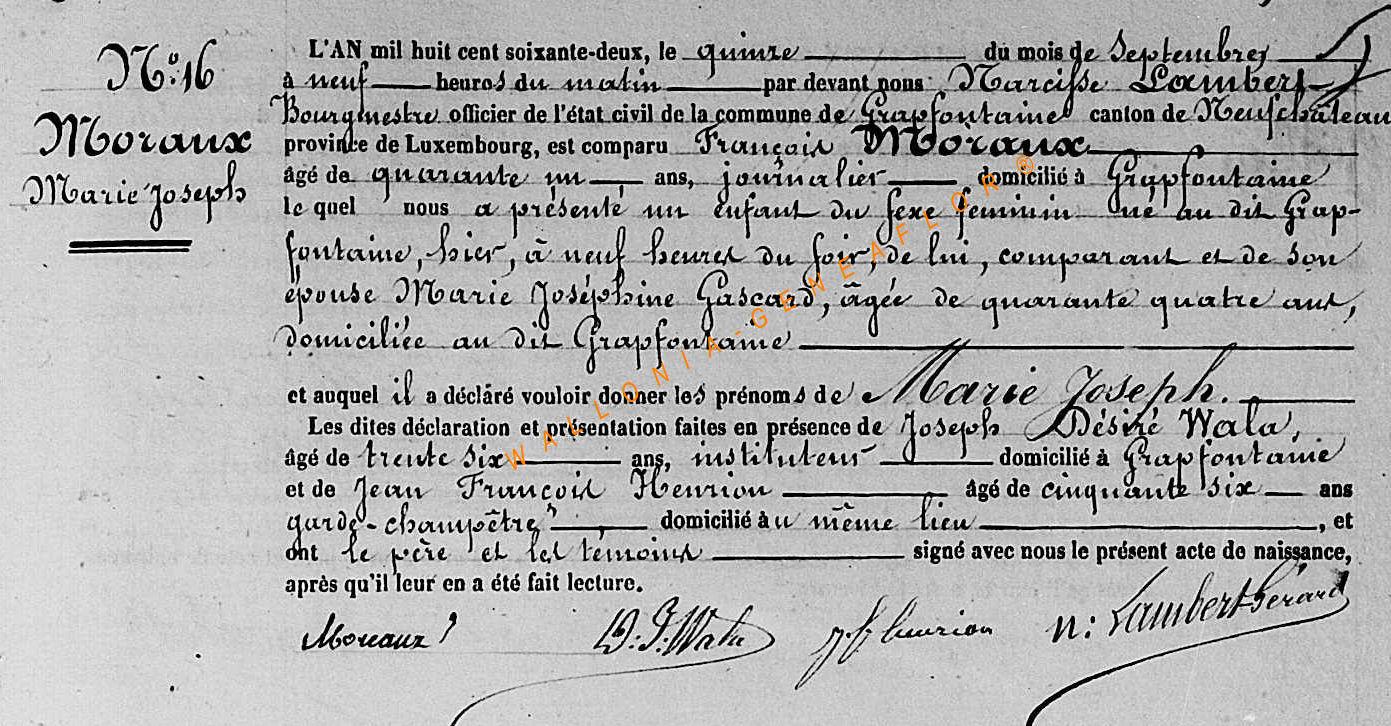 N.º 16
Moraux
Marie Joseph
L'AN mil huit cent soixante-deux, le quinze du mois de Septembre,
à neuf heures du matin par devant nous Narcisse Lambert
Bourgmestre officier de l'état civil de la commune de Grapfontaine canton de Neufchâteau
province de Luxembourg, est comparu François Moraux
âgé de quarante un ans, journalier domicilié à Grapfontaine
le quel nous a présenté un enfant du sexe feminin né au dit Grap-
fontaine, hier, à neuf heures du soir, de lui, comparant et de son
épouse Marie Joséphine Gascard, âgée de quarante quatre ans,
domiciliée au dit Grapfontaine
et auquel il a déclaré vouloir donner les prénoms de Marie Joseph.
Les dites déclaration et présentation faites en présence de Joseph Désiré Wala,
âgé de trente six ans, instituteur domicilié à Grapfontaine
et de Jean François Henrion âgé de cinquante six ans
garde-champêtre, domicilié au même lieu, et
ont le père et les témoins signé avec nous le présent acte de naissance,
après qu'il leur en a été fait lecture.
Moraux D. J. Wala J f henrion N: Lambert-Gérard
WALLONIA-GENEAFLOR®